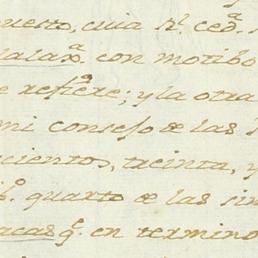 puesto, cuia Rl. cedª.
Galaxª. con motibo
se refiere; y la otra
mi consejo de las
cientos, treinta, y
lo. quarto de las
acas q. en termino